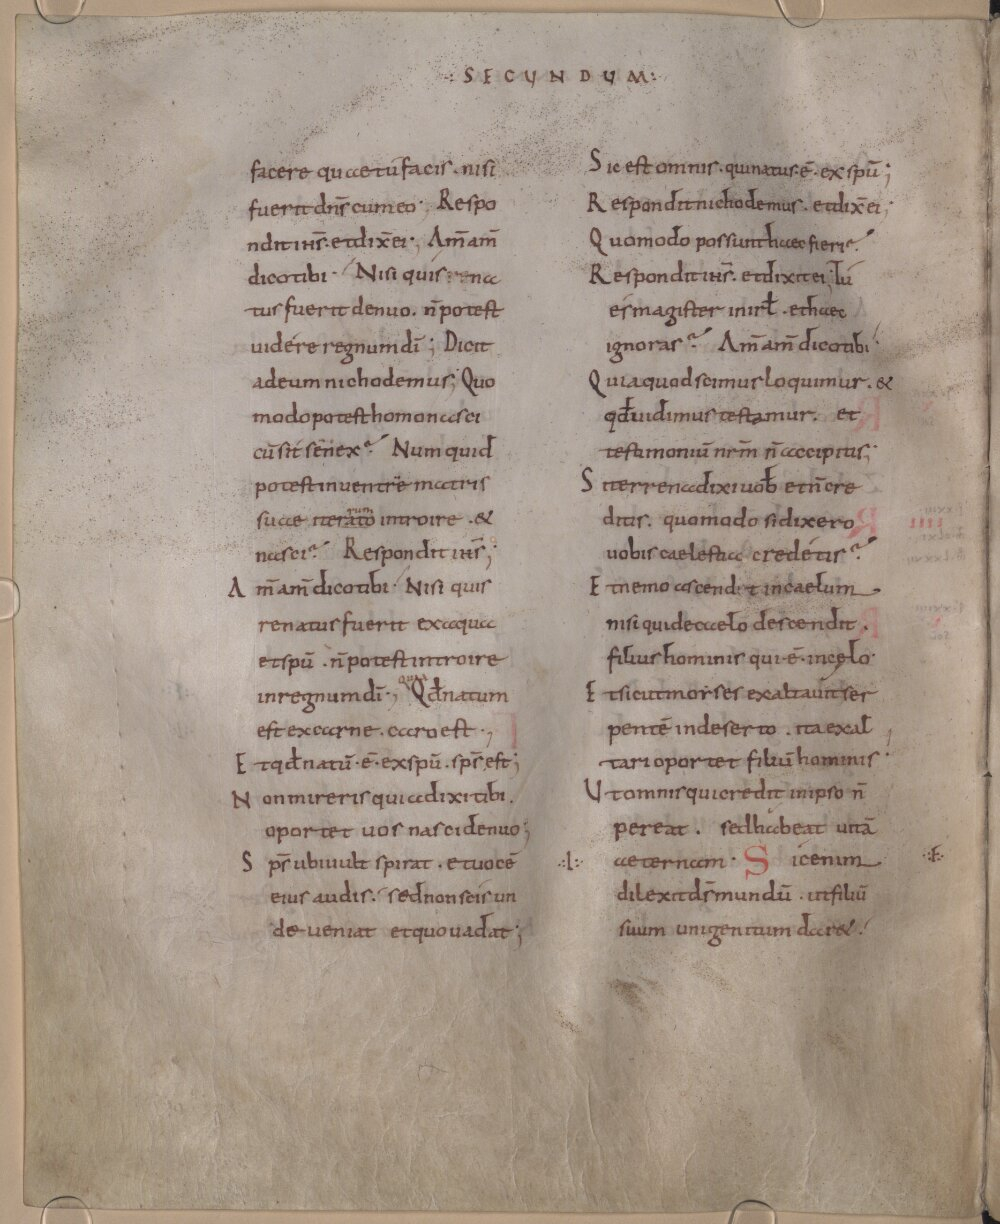 :SECUNDUM:
facere quae tu facis. nisi
fuerit dn̄s cum eo; Respo
ndit ih̄s. et dix̄ ei; Am̄ am̄
dico tibi. Nisi quis rena
tus fuerit denuo. n̄ potest
uidere regnum dī; Dicit
ad eum nichodemus; Quo
modo potest homo nasci
cū sit senex? Num quid
potest in uentrē matris
suae iterato introire. &
rum
nasci? Respondit ih̄s;
Am̄ am̄ dico tibi. Nisi quis
renatus fuerit ex aqua
et spū. n̄ potest introire
in regnum dī; Qd̄ natum
quia
est ex carne. caro est.;
Et qd̄ natū. ē. ex spū. sps̄ est;
Non mireris quia dixi tibi.
oportet uos nasci denuo;
Sps̄ ubi uult spirat. et uocē
eius audis. sed non scis un
de ueniat et quo uadat;
Sic est omnis. qui natus. ē. ex spū;
Respondit nichodemus. et dix̄ ei;
Quomodo possunt haec fieri?
Respondit ih̄s. et dixit ei; Tu
es magister in isrl̄. et haec
ignoras? Am̄ am̄ dico tibi
Quia quod scimus loquimur. &
qd̄ uidimus testamur. et
testimoniū nrm̄ n̄ accipitis;
Si terrena dixi uob̄ et n̄ cre
ditis. quomodo si dixero
uobis caelestia credetis?
Et nemo ascendit in caelum
nisi qui de caelo descendit.
filius hominis qui. ē. in celo.
Et sicut moises exaltauit ser
pentē in deserto. ita exal
tari oportet filiū hominis;
Ut omnis qui credit in ipso n̄
pereat. sed habeat uitā
·:l:· aeternam. Sic enim ·:F:·
dilexit ds̄ mundū. ut filiū
suum unigenitum dare&.